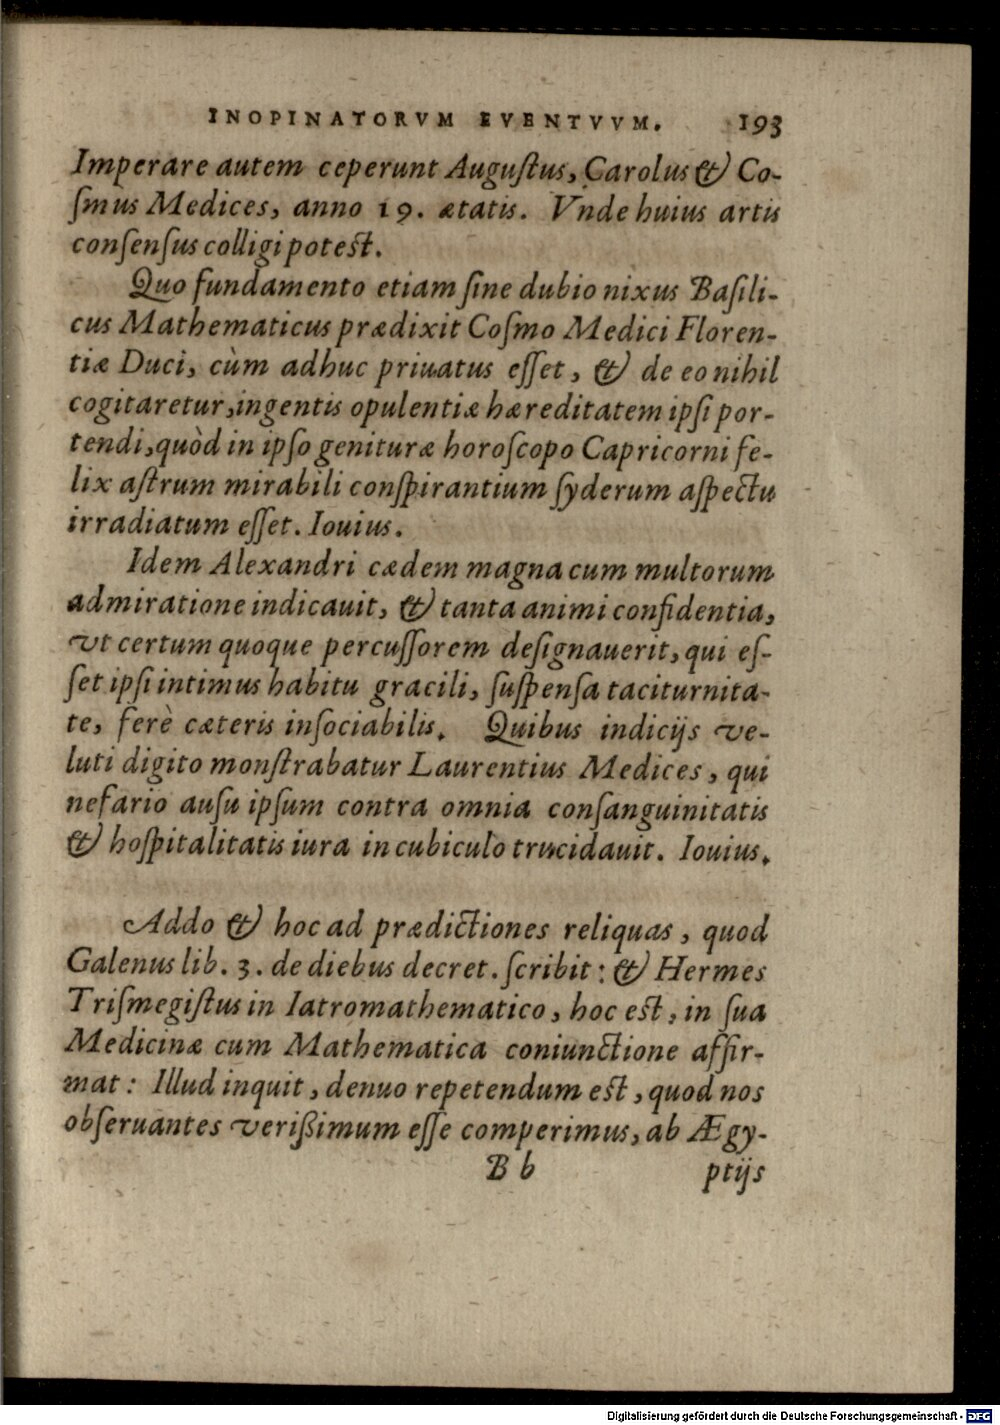 INOPINATORVM EVENTVVM. 193
Imperare autem ceperunt Auguſtus, Carolus & Co-
ſmus Medices, anno 19. ætatis. Vnde huius artis
conſenſus colligi poteſt.
Quo fundamento etiam ſine dubio nixus Baſili-
cus Mathematicus prædixit Coſmo Medici Floren-
tiæ Duci, cùm adhuc priuatus eſſet, & de eo nihil
cogitaretur, ingentis opulentiæ hæreditatem ipſi por-
tendi, quòd in ipſo genituræ horoſcopo Capricorni fe-
lix aſtrum mirabili conſpirantium ſyderum aſpectu
irradiatum eſſet. Iouius.
Idem Alexandri cædem magna cum multorum
admiratione indicauit, & tanta animi confidentia,
vt certum quoque percuſſorem deſignauerit, qui eſ-
ſet ipſi intimus habitu gracili, ſuſpenſa taciturnita-
te, ferè cæteris inſociabilis. Quibus indicijs ve-
luti digito monſtrabatur Laurentius Medices, qui
nefario auſu ipſum contra omnia conſanguinitatis
& hoſpitalitatis iura in cubiculo trucidauit. Iouius.
Addo & hoc ad prædictiones reliquas, quod
Galenus lib. 3. de diebus decret. ſcribit: & Hermes
Triſmegiſtus in Iatromathematico, hoc eſt, in ſua
Medicinæ cum Mathematica coniunctione affir-
mat: Illud inquit, denuo repetendum eſt, quod nos
obſeruantes verißimum eſſe comperimus, ab Ægy-
B b ptijs
Digitalisierung gefördert durch die Deutsche Forschungsgemeinschaft - DFG